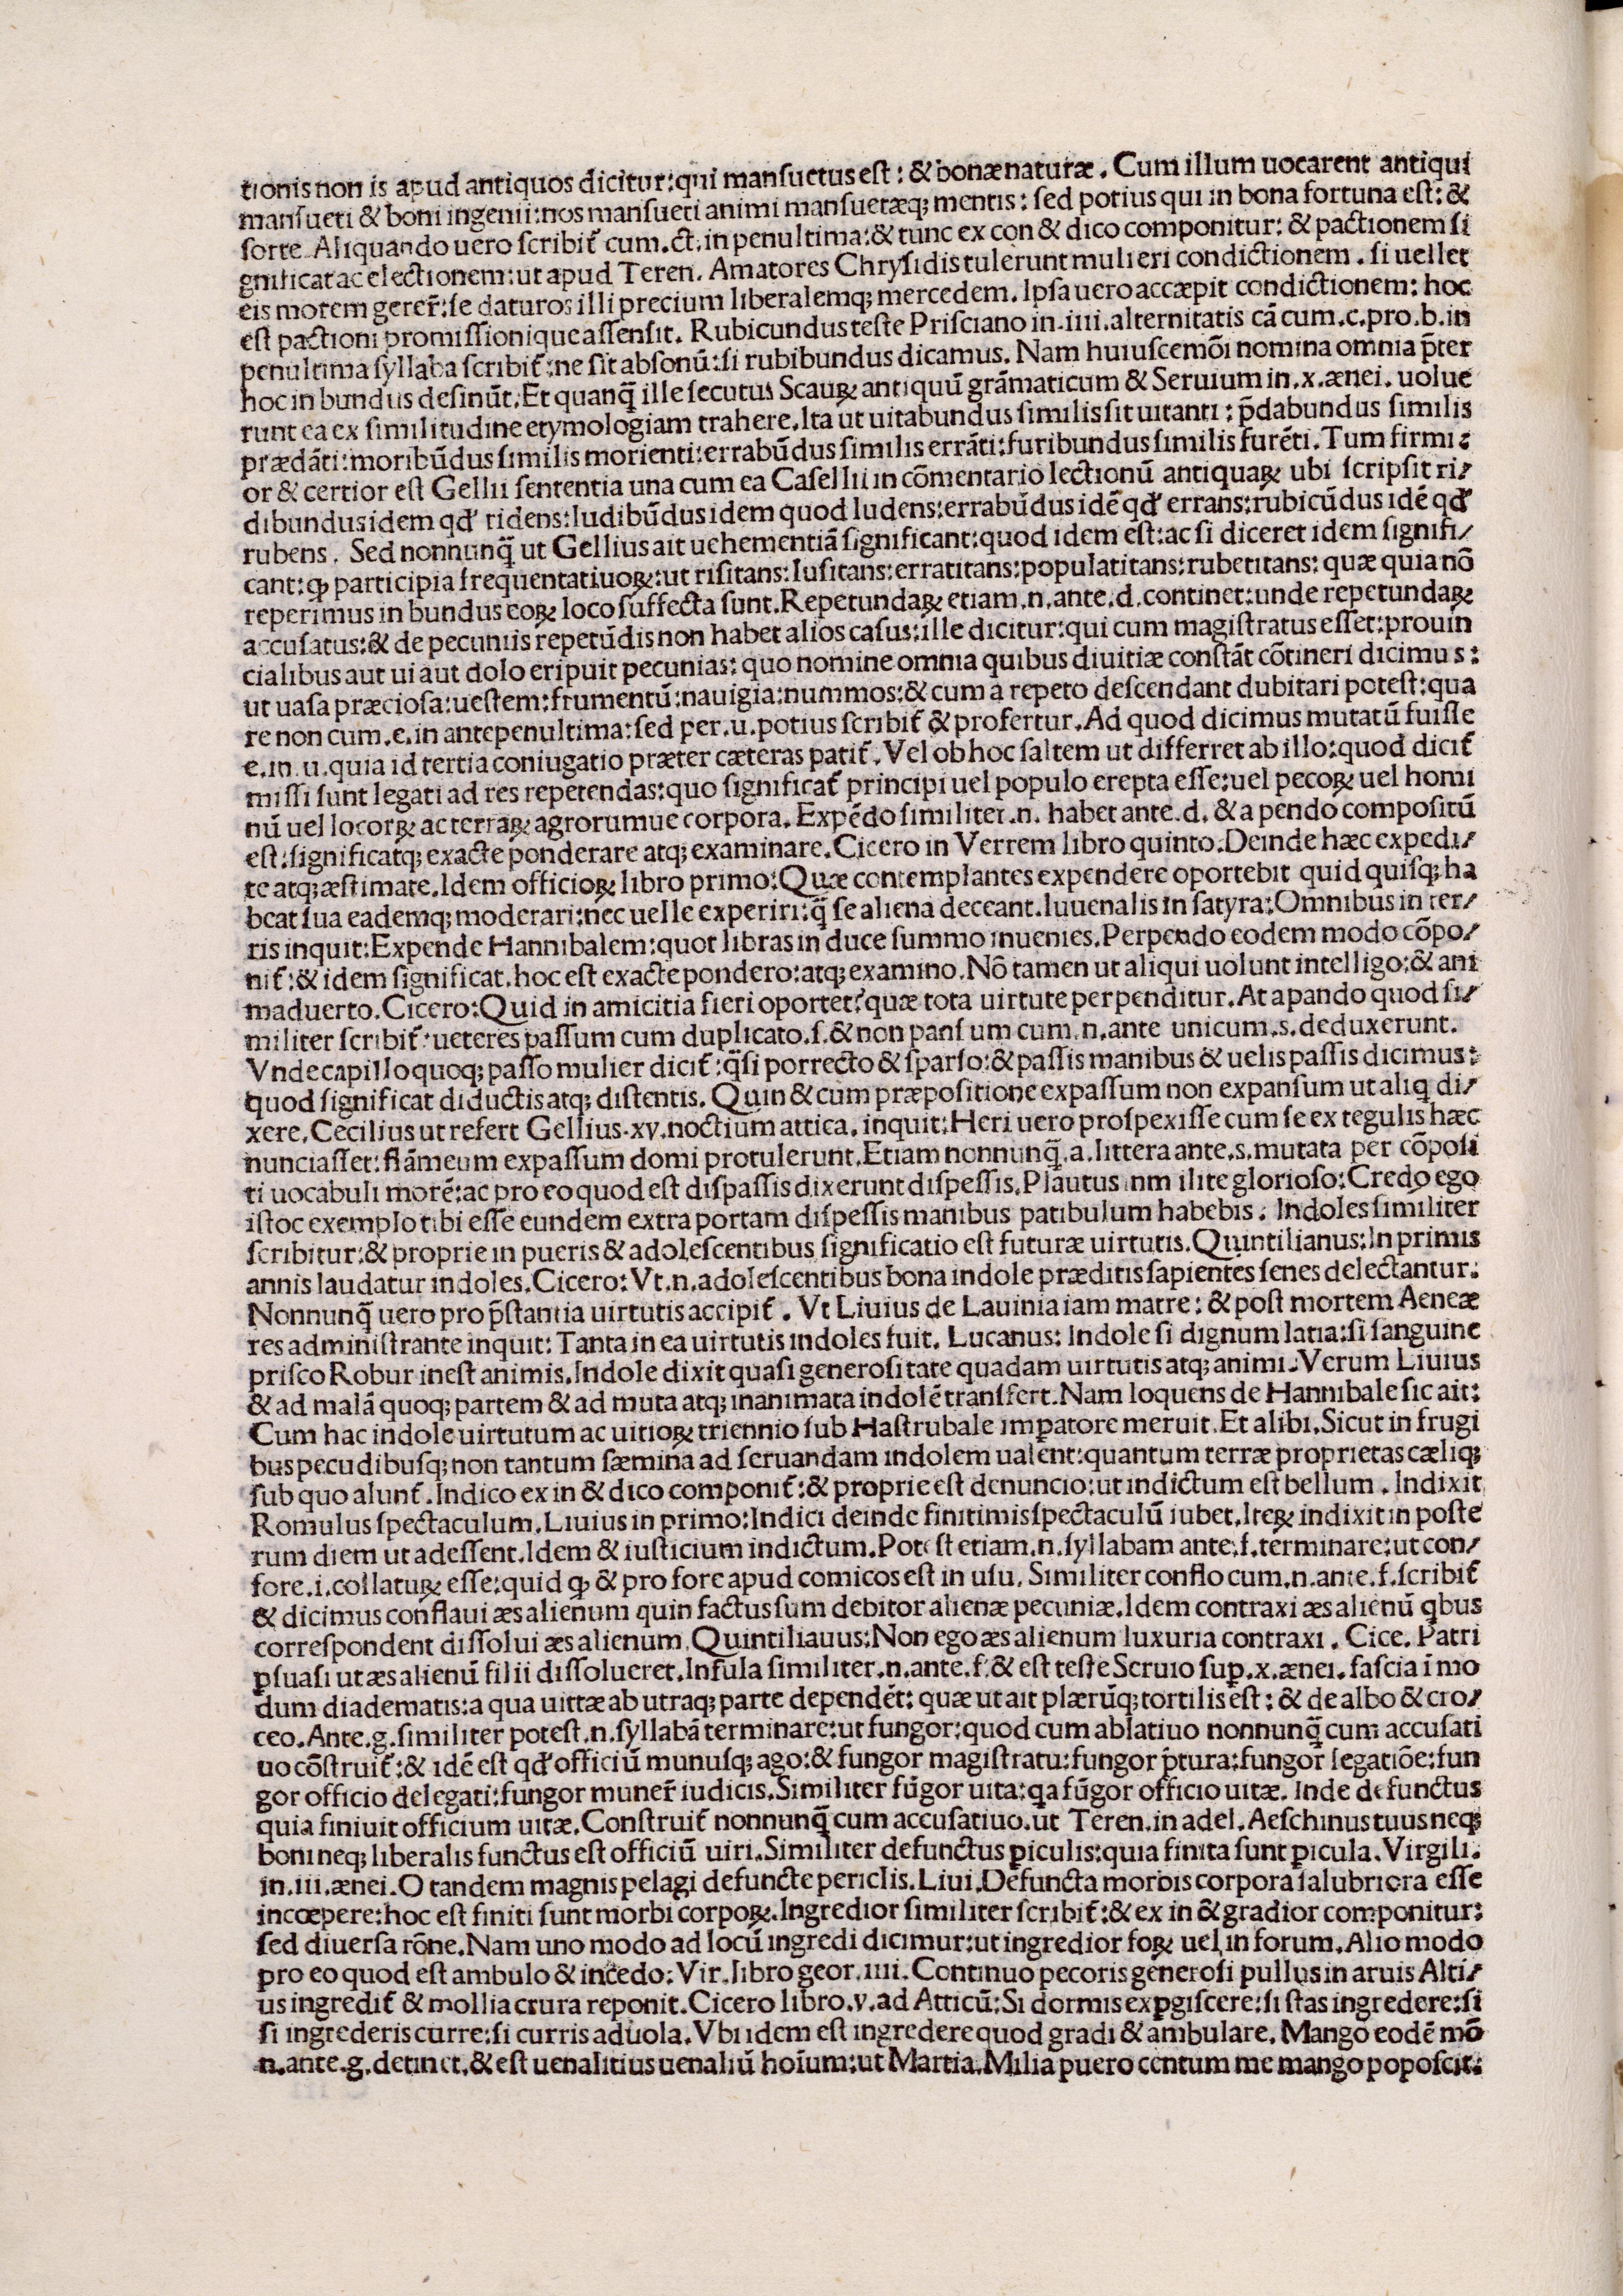 tionis non is apud antiquos dicitur:qui mansuetus est: & bonæ naturæ. Cum illum uocarent antiqui
mansueti & boni ingenii:nos mansueti animi mansuetæq; mentis: sed potius qui in bona fortuna est: &
sorte. Aliquando uero scribit̃ cum.ct.in penultima:& tunc ex con & dico componitur: & pactionem si
gnificat ac electionem:ut apud Teren. Amatores Chrysidis tulerunt mulieri condictionem. si uellet
eis morem gerer̃:se daturos illi precium liberalemq; mercedem. Ipsa uero accæpit condictionem: hoc
est pactioni promissionique assensit. Rubicundus teste Prisciano in.iiii.alternitatis cã cum.c.pro.b.in
penultima syllaba scribit̃:ne sit absonũ:si rubibundus dicamus. Nam huiuscemõi nomina omnia p̃ter
hoc in bundus desinũt. Et quanq̃ ille secutus Scauꝝ antiquũ grãmaticum & Seruium in.x.ænei. uolue
runt ea ex similitudine etymologiam trahere. Ita ut uitabundus similis sit uitanti: p̃dabundus similis
prædãti:moribũdus similis morienti:errabũdus similis errãti:furibundus similis furẽti. Tum firmi:
or & certior est Gellii sententia una cum ea Casellii in cõmentario lectionũ antiquaꝝ ubi scripsit ri/
dibundus idem qd̃ ridens:ludibũdus idem quod ludens:errabũdus idẽ qd̃ errans:rubicũdus idẽ qd̃
rubens. Sed nonnunq̃ ut Gellius ait uehementiã significant:quod idem est:ac si diceret idem signifi/
cant:ꝙ participia frequentatiuoꝝ:ut risitans:lusitans:erratitans:populatitans:rubetitans: quæ quia nõ
reperimus in bundus eoꝝ loco suffecta sunt. Repetundaꝝ etiam.n.ante.d.continet:unde repetundaꝝ
accusatus:& de pecuniis repetũdis non habet alios casus:ille dicitur:qui cum magistratus esset:prouin
cialibus aut ui aut dolo eripuit pecunias: quo nomine omnia quibus diuitiæ constãt cõtineri dicimus:
ut uasa præciosa:uestem:frumentũ:nauigia:nummos:& cum a repeto descendant dubitari potest:qua
re non cum.e.in antepenultima:sed per.u.potius scribit̃ & profertur. Ad quod dicimus mutatũ fuisse
e.in.u.quia id tertia coniugatio præter cæteras patit̃. Vel ob hoc saltem ut differret ab illo:quod dicit̃
missi sunt legati ad res repetendas:quo significat̃ principi uel populo erepta esse:uel pecoꝝ uel homi
nũ uel locorꝝ ac terraꝝ agrorumue corpora. Expẽdo similiter.n. habet ante.d. & a pendo compositũ
est:significatq; exacte ponderare atq; examinare. Cicero in Verrem libro quinto. Deinde hæc expedi/
te atq; æstimate. Idem officioꝝ libro primo: Quæ contemplantes expendere oportebit quid quisq; ha
beat sua eademq; moderari:nec uelle experiri:q̃ se aliena deceant. Iuuenalis in satyra: Omnibus in ter/
ris inquit: Expende Hannibalem:quot libras in duce summo inuenies. Perpendo eodem modo cõpo/
nit̃:& idem significat.hoc est exacte pondero:atq; examino. Nõ tamen ut aliqui uolunt intelligo:& ani
maduerto. Cicero: Quid in amicitia fieri oportet?quæ tota uirtute perpenditur. At a pando quod si/
militer scribit̃:ueteres passum cum duplicato.s.& non pansum cum.n.ante unicum.s.deduxerunt.
Vnde capillo quoq; passo mulier dicit̃:q̃si porrecto & sparso:& passis manibus & uelis passis dicimus:
quod significat diductis atq; distentis. Quin & cum præpositione expassum non expansum ut aliq di/
xere. Cecilius ut refert Gellius.xv.noctium attica. inquit: Heri uero prospexisse cum se ex tegulis hæc
nunciasset:flãmeum expassum domi protulerunt. Etiam nonnunq̃.a.littera ante.s.mutata per cõposi
ti uocabuli morẽ:ac pro eo quod est dispassis dixerunt dispessis. Plautus inm ilite glorioso: Credo ego
istoc exemplo tibi esse eundem extra portam dispessis manibus patibulum habebis. Indoles similiter
scribitur:& proprie in pueris & adolescentibus significatio est futuræ uirtutis. Quintilianus: In primis
annis laudatur indoles. Cicero: Vt.n.adolescentibus bona indole præditis sapientes senes delectantur.
Nonnunq̃ uero pro p̃stantia uirtutis accipit̃. Vt Liuius de Lauinia iam matre: & post mortem Aeneæ
res administrante inquit: Tanta in ea uirtutis indoles fuit. Lucanus: Indole si dignum latia:si sanguine
prisco Robur inest animis. Indole dixit quasi generositate quadam uirtutis atq; animi. Verum Liuius
& ad malã quoq; partem & ad muta atq; inanimata indolẽ transfert. Nam loquens de Hannibale sic ait:
Cum hac indole uirtutum ac uitioꝝ triennio sub Hastrubale imꝑatore meruit. Et alibi. Sicut in frugi
bus pecudibusq; non tantum sæmina ad seruandam indolem ualent:quantum terræ proprietas cæliq;
sub quo alunt̃. Indico ex in & dico componit̃:& proprie est denuncio:ut indictum est bellum. Indixit
Romulus spectaculum. Liuius in primo: Indici deinde finitimis spectaculũ iubet. Iteꝝ indixit in poste
rum diem ut adessent. Idem & iusticium indictum. Potest etiam.n.syllabam ante.f.terminare:ut con/
fore.i.collatuꝝ esse:quid ꝙ & pro fore apud comicos est in usu. Similiter conflo cum.n.ante.f.scribit̃
& dicimus conflaui æs alienum quin factus sum debitor alienæ pecuniæ. Idem contraxi æs alienũ qbus
correspondent dissolui æs alienum. Quintiliauus: Non ego æs alienum luxuria contraxi. Cice. Patri
ꝑsuasi ut æs alienũ filii dissolueret. Infula similiter.n.ante.f.& est teste Seruio suꝑ.x.ænei. fascia ĩ mo
dum diadematis:a qua uittæ ab utraq; parte dependẽt: quæ ut ait plærũq; tortilis est: & de albo & cro/
ceo. Ante.g.similiter potest.n.syllabã terminare:ut fungor:quod cum ablatiuo nonnunq̃ cum accusati
uo cõstruit̃:& idẽ est qd̃ officiũ munusq; ago:& fungor magistratu:fungor p̃tura:fungor legatiõe:fun
gor officio delegati:fungor muner̃ iudicis. Similiter fũgor uita:qa fũgor officio uitæ. Inde defunctus
quia finiuit officium uitæ. Construit̃ nonnunq̃ cum accusatiuo.ut Teren.in adel. Aeschinus tuus neq;
boni neq; liberalis functus est officiũ uiri. Similiter defunctus ꝑiculis:quia finita sunt ꝑicula. Virgili.
in.iii.ænei. O tandem magnis pelagi defuncte periclis. Liui. Defuncta morbis corpora salubriora esse
incœpere:hoc est finiti sunt morbi corpoꝝ. Ingredior similiter scribit̃:& ex in & gradior componitur:
sed diuersa rõne. Nam uno modo ad locũ ingredi dicimur:ut ingredior foꝝ uel in forum. Alio modo
pro eo quod est ambulo & incedo: Vir. libro geor.iiii. Continuo pecoris generosi pullus in aruis Alti/
us ingredit̃ & mollia crura reponit. Cicero libro.v.ad Atticũ: Si dormis exꝑgiscere:si stas ingredere:si
si ingrederis curre:si curris aduola. Vbi idem est ingredere quod gradi & ambulare. Mango eodẽ mõ
n.ante.g.detinet.& est uenalitius uenaliũ hoĩum:ut Martia. Milia puero centum me mango poposcit: